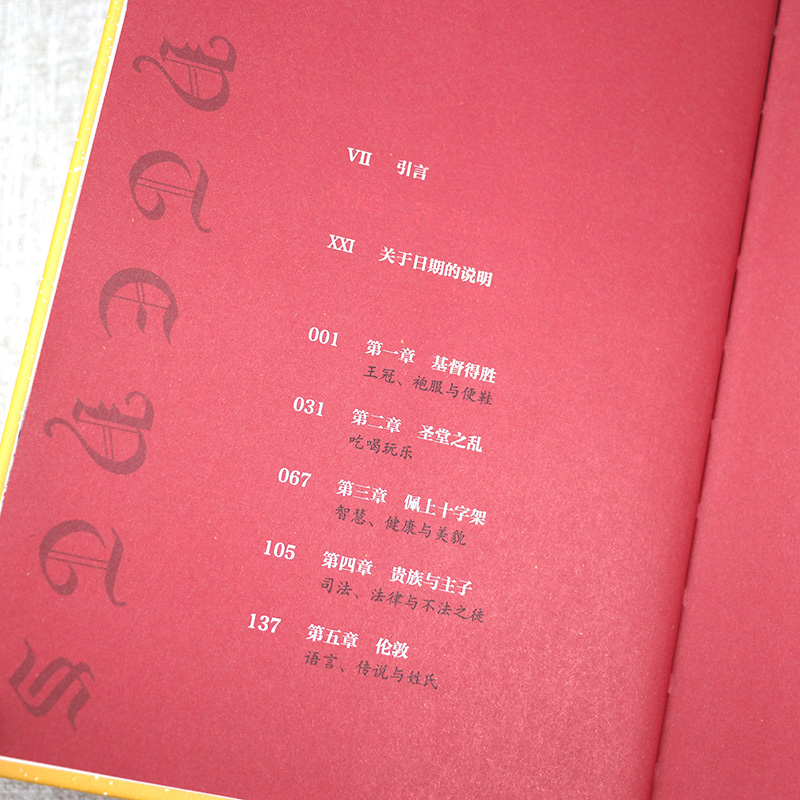 VII 引言
XXI 关于日期的说明
001 第一章 基督得胜
王冠、袍服与便鞋
031 第二章 圣堂之乱
吃喝玩乐
067 第三章 佩上十字架
智慧、健康与美貌
105 第四章 贵族与主子
司法、法律与不法之徒
137 第五章 伦敦
语言、传说与姓氏